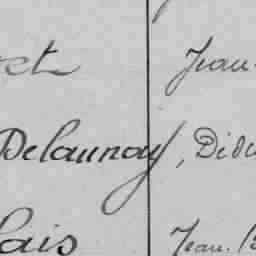 et Jean
Delaunay, Did
lais Jean. B